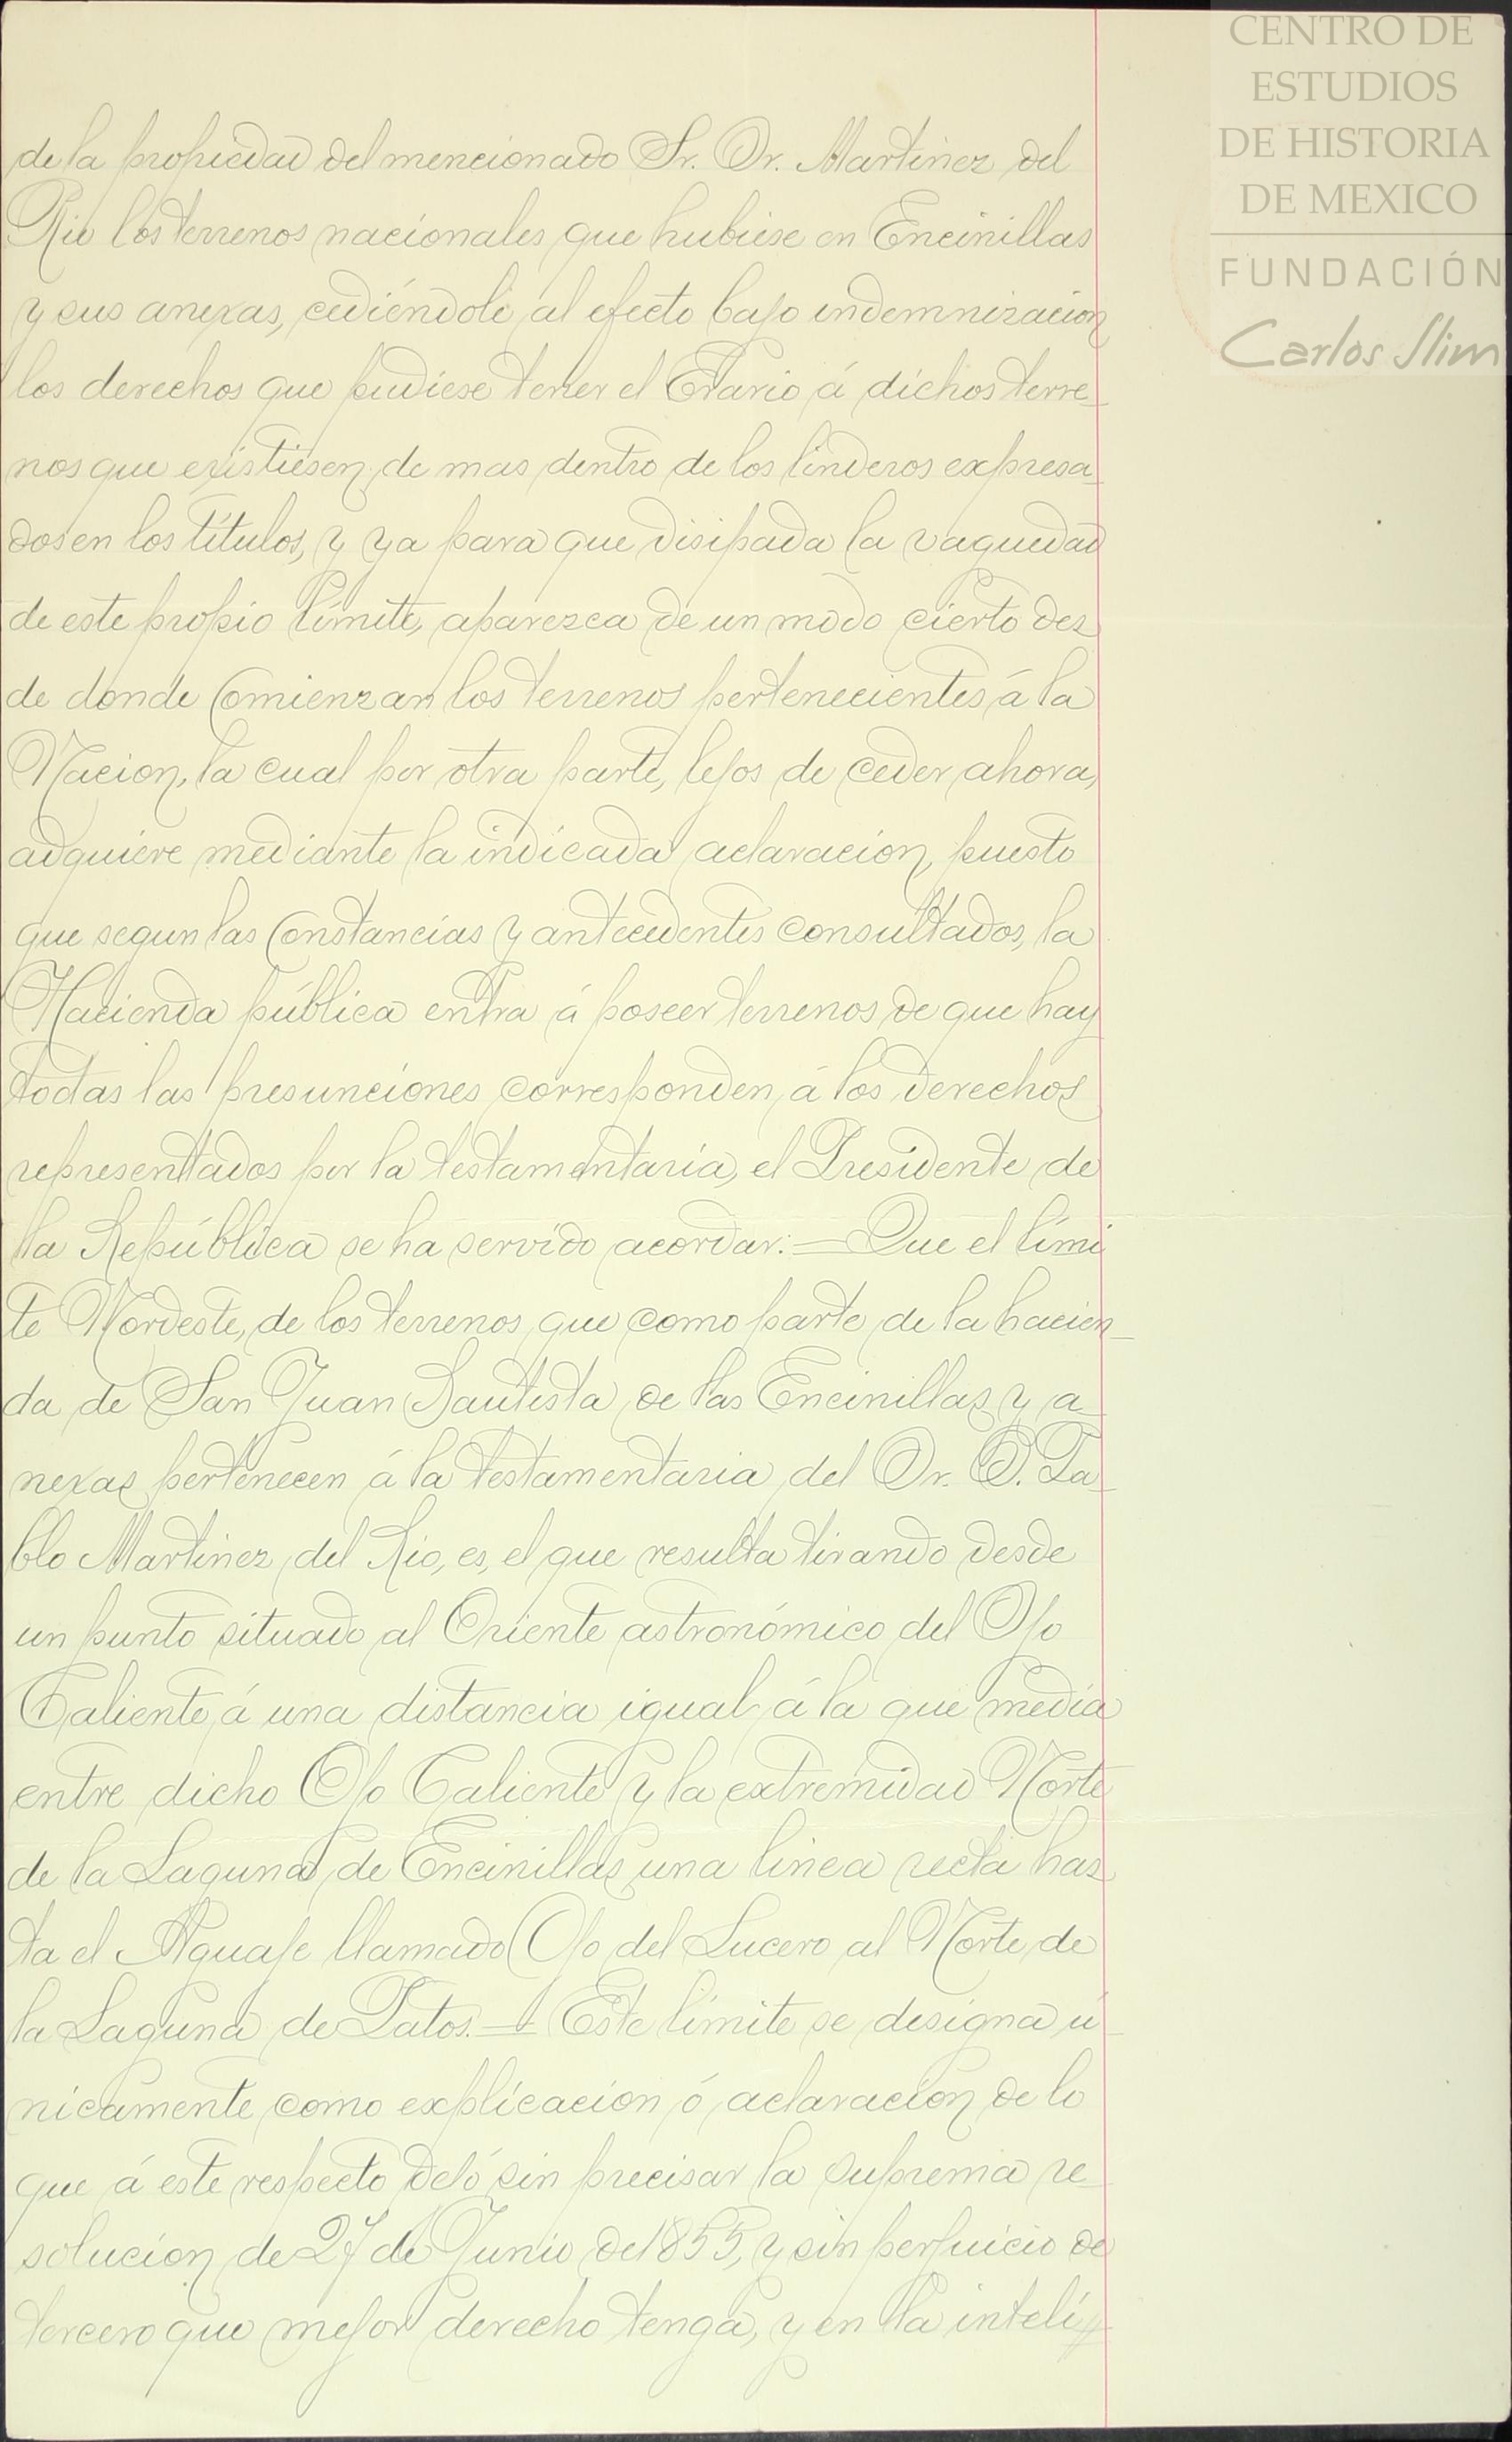 CENTRO DE
ESTUDIOS
DE HISTORIA
DE MEXICO
FUNDACIÓN
Carlos Slim
de la propiedad del mencionado Sr. Dr. Martinez del
Rio los terrenos nacionales que hubiese en Encinillas
y sus anexas, cediéndole al efecto bajo indemnizacion
los derechos que pudiese tener el Erario á dichos terre_
nos que existiesen de mas dentro de los linderos expresa_
dos en los títulos, y ya para que disipada la vaguedad
de este propio límite, aparezca de un modo cierto des
de donde comienzan los terrenos pertenecientes á la
Nacion, la cual por otra parte, lejos de ceder ahora,
adquiere mediante la indicada aclaracion, puesto
que segun las constancias y antecedentes consultados, la
Hacienda pública entra á poseer terrenos de que hay
todas las presunciones corresponden á los derechos
representados por la testamentaría, el Presidente de
la República se ha servido acordar: = Que el lími
te Nordeste, de los terrenos que como parte de la hacien_
da de San Juan Bautista de las Encinillas y a_
nexas pertenecen á la testamentaria del Dr. D. Pa_
blo Martinez del Rio, es, el que resulta tirando desde
un punto situado al Oriente astronómico del Ojo
Caliente á una distancia igual á la que media
entre dicho Ojo Caliente y la extremidad Norte
de la Laguna de Encinillas una linea recta has
ta el Aguaje llamado Ojo del Lucero al Norte de
la Laguna de Patos. = Este límite se designa ú_
nicamente como explicacion ó aclaracion de lo
que á este respecto dejó sin precisar la suprema re_
solucion de 27 de Junio de 1855, y sin perjuicio de
tercero que mejor derecho tenga, y en la inteli